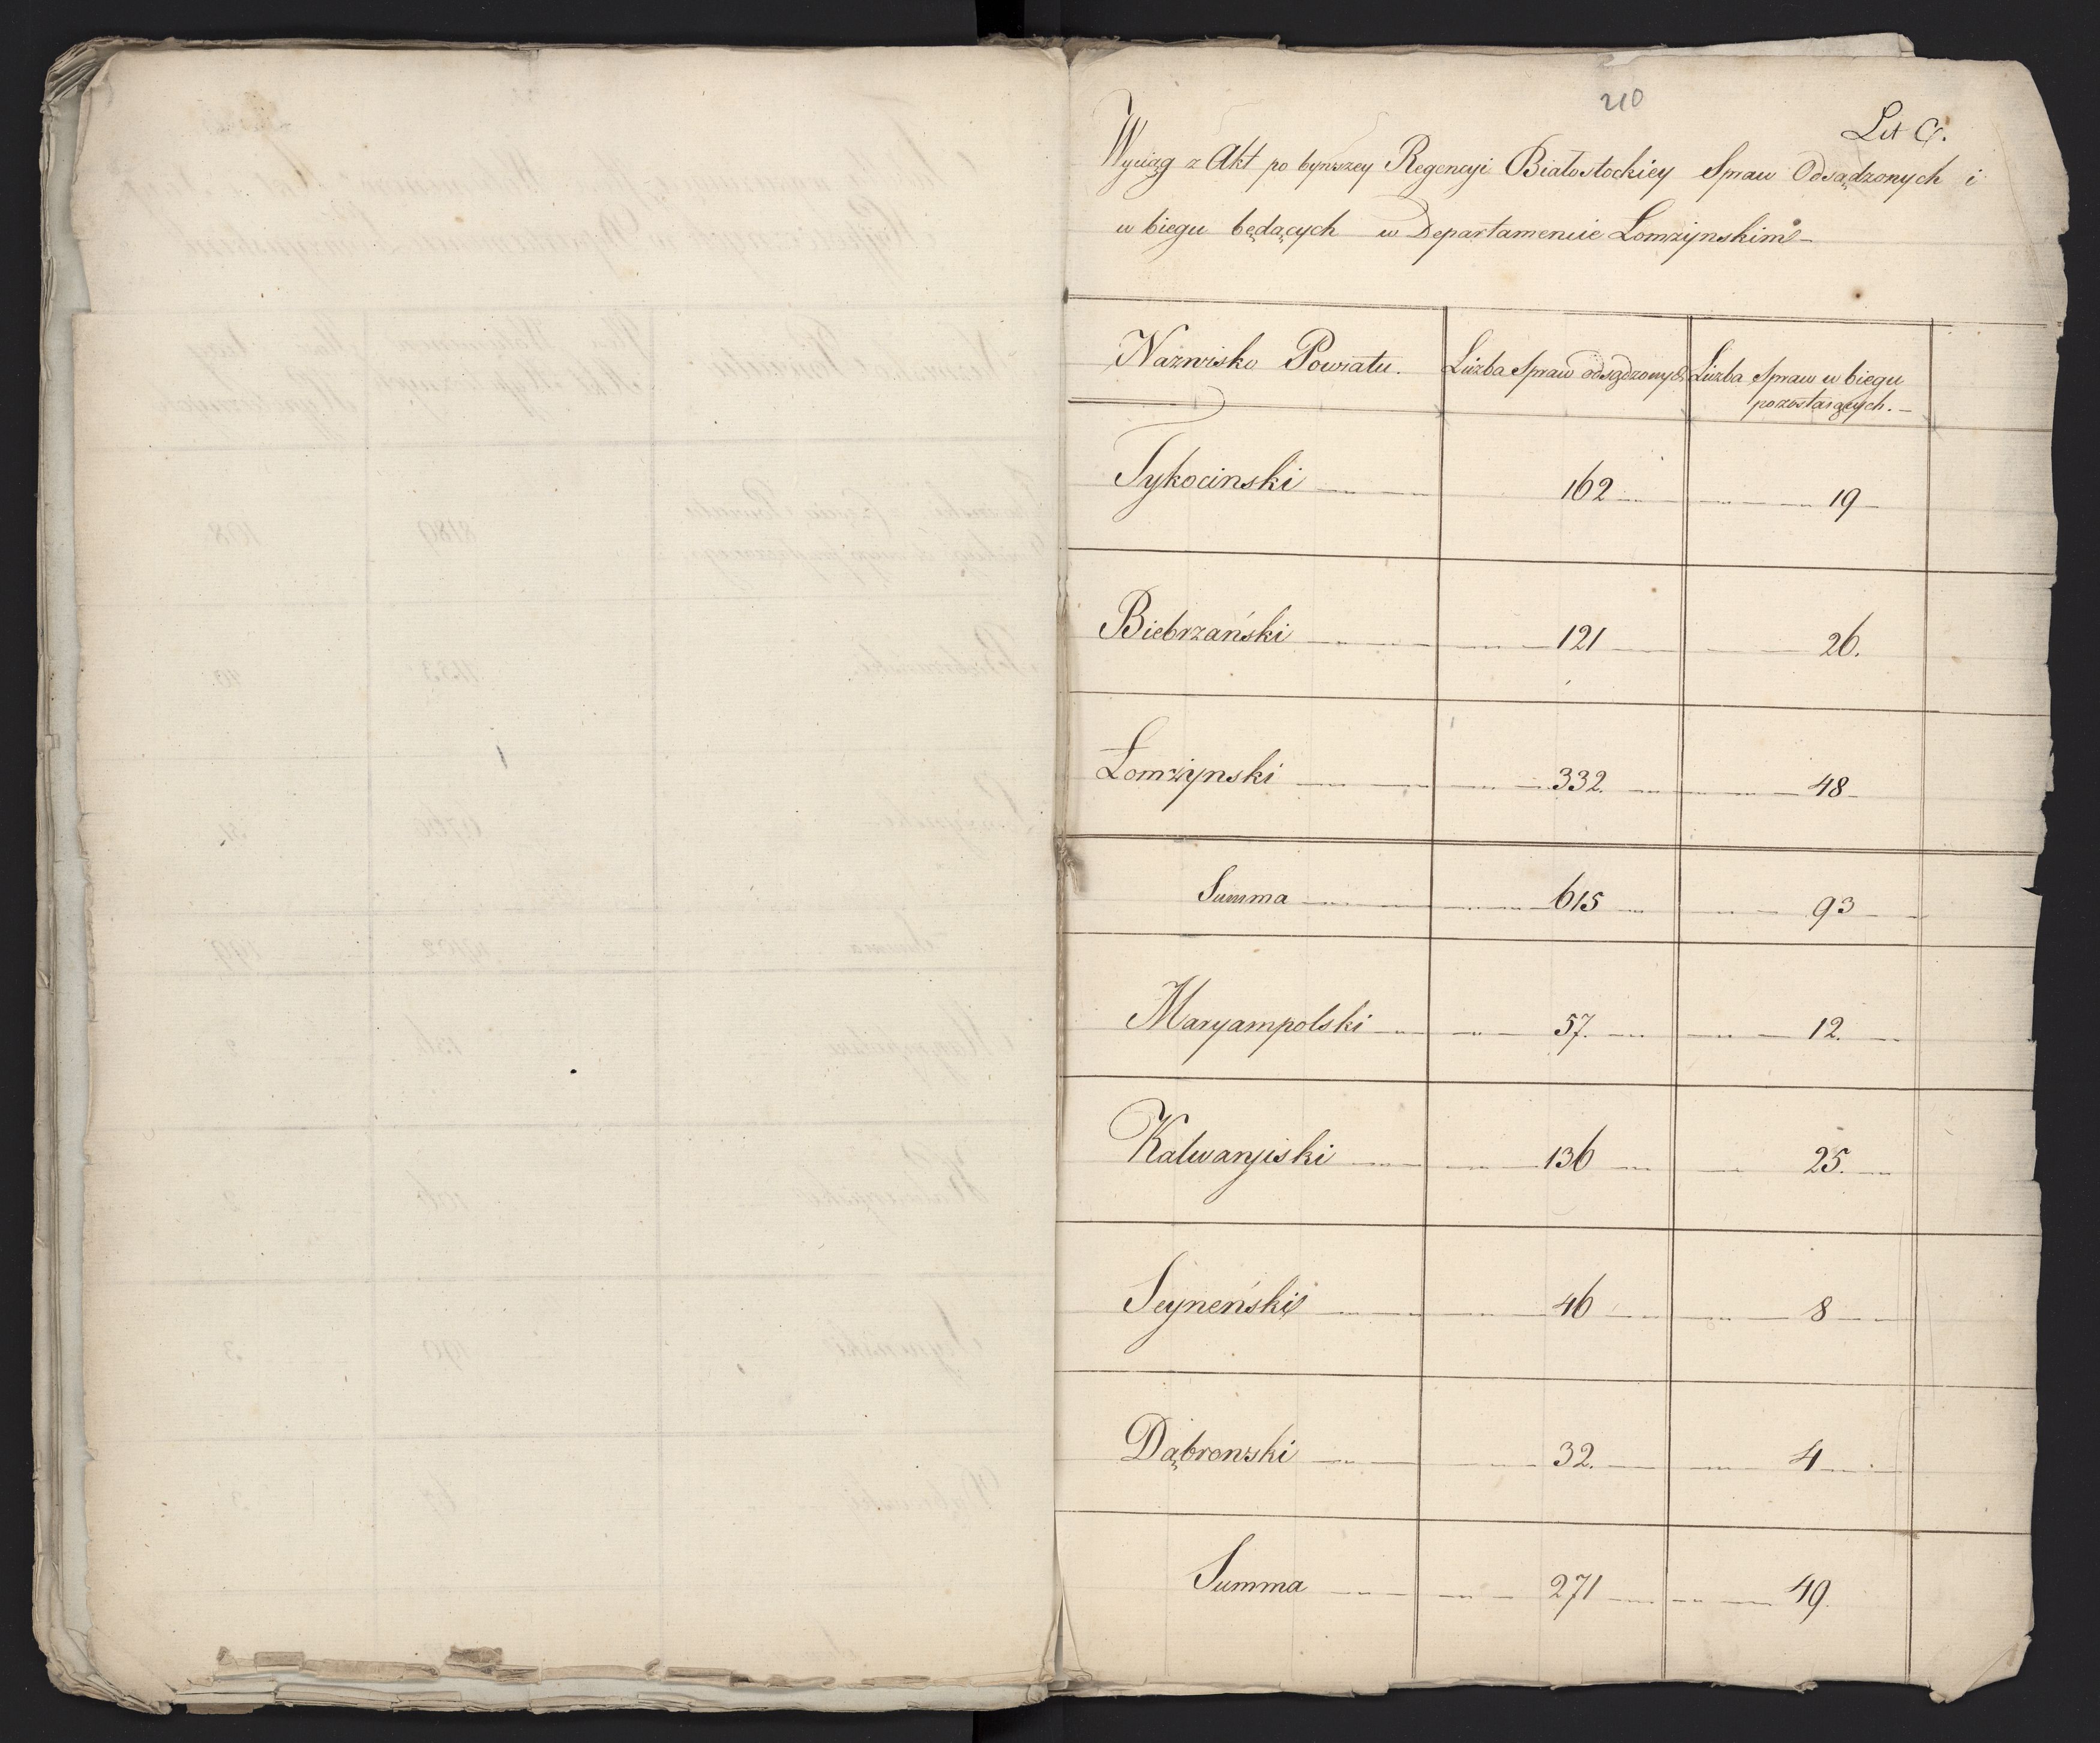 210
Lit C.
Wyciąg z Akt po bywszey Regencyi Białostockiey Spraw Odsądzonych i
w biegu będących w Departamencie Łomżynskim
Nazwisko Powiatu. Liczba Spraw odsądzonych Liczba Spraw w biegu
pozostaiących.
Tykocinski 162 19
Biebrzański 121 26.
Łomżynski 332. 48
Summa 615 93
Maryampolski 57. 12.
Kalwaryiski 136 25.
Seyneński 46 8
Dąbrowski 32. 4
Summa 271 49.